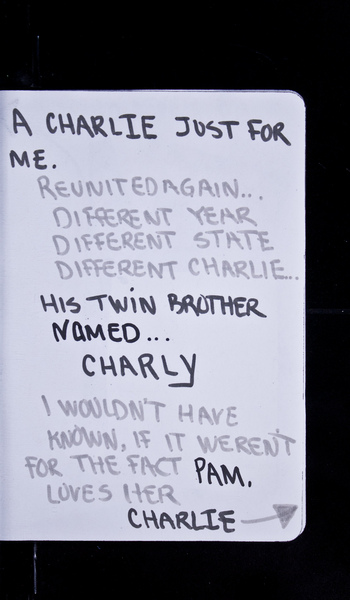 A CHARLIE JUST FOR
ME.
REUNITED AGAIN...
DIFFERENT YEAR
DIFFERENT STATE
DIFFERENT CHARLIE...
HIS TWIN BROTHER
NAMED...
CHARLY
I WOULDN'T HAVE
KNOWN, IF IT WEREN'T
FOR THE FACT PAM,
LOVES HER
CHARLIE →